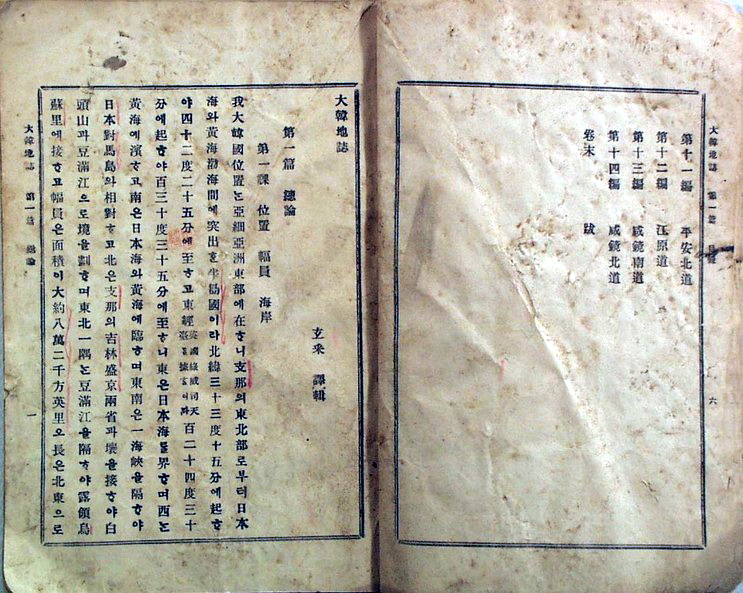 大韓地誌 第一篇 目錄
第十一編 平安北道
第十二編 江原道
第十三編 咸鏡南道
第十四編 咸鏡北道
卷末 跋
六
大韓地誌
玄采 譯輯
第一篇 總論
第一課 位置 幅員 海岸
我大韓國位置ᄂᆞᆫ亞細亞洲東部에在ᄒᆞ니支那의東北部로부터日本
海와黃海渤海間에突出ᄒᆞᆫ半島國이라北緯三十三度十五分에起ᄒᆞ
야四十二度二十五分에至ᄒᆞ고東經英國綠威司天臺를據ᄒᆞᆷ이라百二十四度三十
分에起ᄒᆞ야百三十度三十五分에至ᄒᆞ니東은日本海를界ᄒᆞ며西ᄂᆞᆫ
黃海에濱ᄒᆞ고南은日本海와黃海에臨ᄒᆞ며東南은一海峽을隔ᄒᆞ야
日本對馬島와相對ᄒᆞ고北은支那의吉林盛京兩省과壤을接ᄒᆞ야白
頭山과豆滿江으로境을劃ᄒᆞ며東北一隅ᄂᆞᆫ豆滿江을隔ᄒᆞ야露領烏
蘇里에接ᄒᆞ고幅員은面積이大約八萬二千方英里오長은北東으로
大韓地誌 第一篇 總論
一